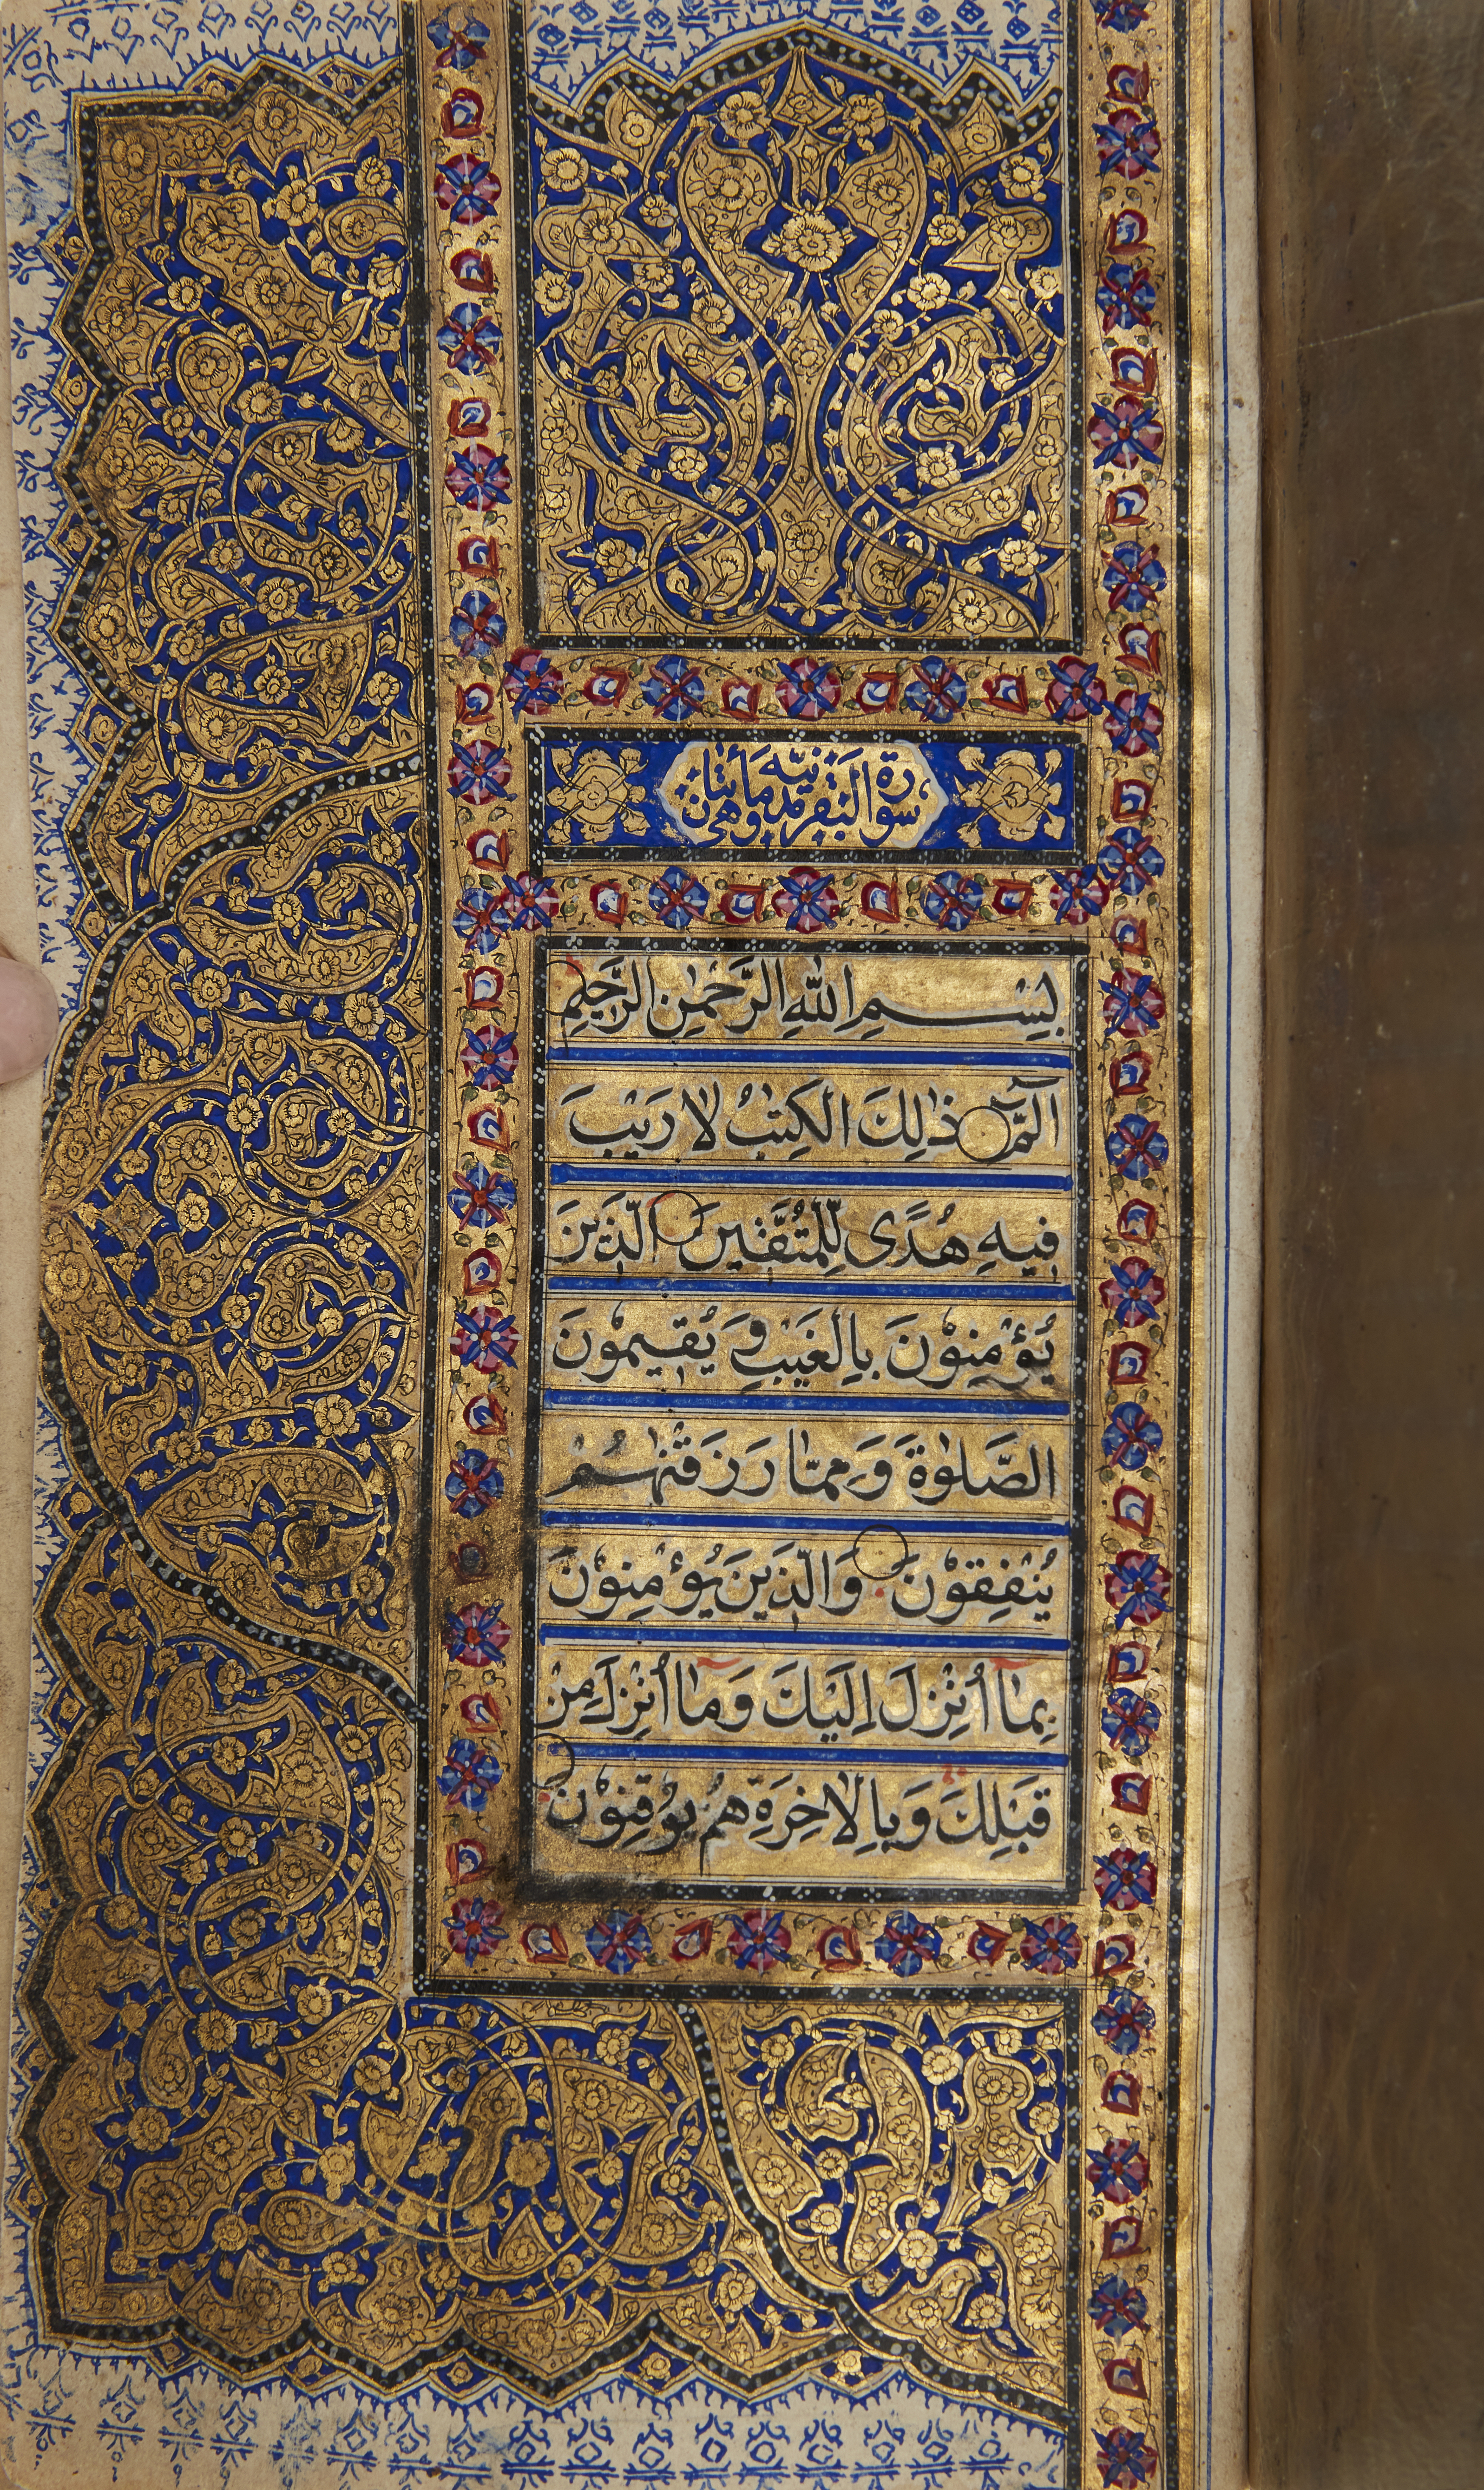 سورة البقرة مدنية وهي مائتان
بِسْمِ اللّٰهِ الرَّحْمٰنِ الرَّحِيمِ
الٓمٓ ذٰلِكَ الْكِتٰبُ لَا رَيْبَ
فِيهِ هُدًى لِّلْمُتَّقِينَ الَّذِينَ
يُؤْمِنُونَ بِالْغَيْبِ وَيُقِيمُونَ
الصَّلٰوةَ وَمِمَّا رَزَقْنٰهُمْ
يُنْفِقُونَ وَالَّذِينَ يُؤْمِنُونَ
بِمَآ اُنْزِلَ اِلَيْكَ وَمَآ اُنْزِلَ مِنْ
قَبْلِكَ وَبِالْاٰخِرَةِ هُمْ يُوقِنُونَ